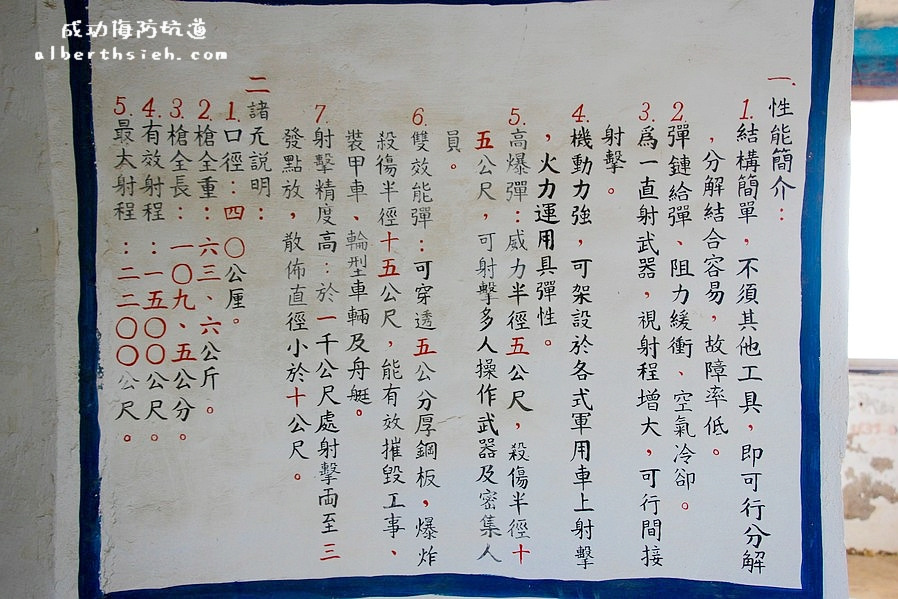 成功海防坑道
alberthsieh.com
一、性能簡介：
1.結構簡單，不須其他工具，即可行分解
，分解結合容易，故障率低。
2.彈鏈給彈、阻力緩衝、空氣冷卻。
3.為一直射武器，視射程增大，可行間接
射擊。
4.機動力強，可架設於各式軍用車上射擊
，火力運用具彈性。
5.高爆彈：威力半徑五公尺，殺傷半徑十
五公尺，可射擊多人操作武器及密集人
員。
6.雙效能彈：可穿透五公分厚鋼板，爆炸
殺傷半徑十五公尺，能有效摧毀工事、
裝甲車、輪型車輛及舟艇。
7.射擊精度高：於一千公尺處射擊兩至三
發點放，散佈直徑小於十公尺。
二諸元說明：
1.口徑：四〇公厘。
2.槍全重：六三、六公斤。
3.槍全長：一〇九、五公分。
4.有效射程：一五〇〇公尺。
5.最大射程：二二〇〇公尺。